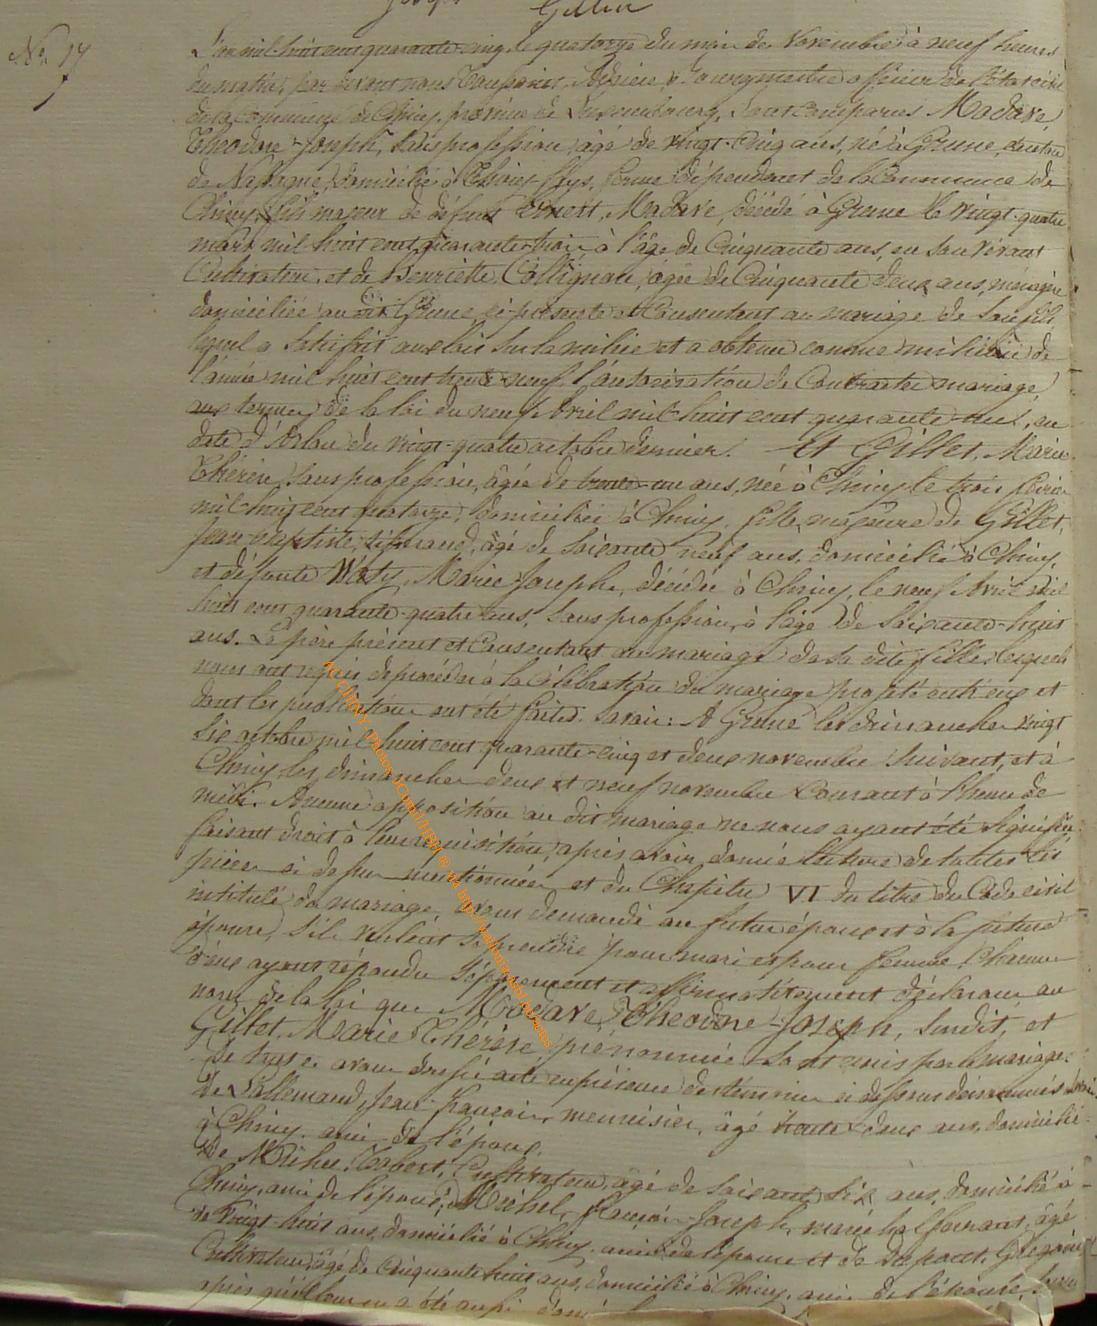 Joseph Gillet
No. 17
L'an mil huit cent quarante-cinq, le quatorze du mois de Novembre à neuf heures
du matin, par devant nous Bourgmestre officier de l'état civil
de la commune de Chiny, province de Luxembourg, sont comparus Madave
Theodore-Joseph, sans profession, âgé de vingt-cinq ans, né à Grune, canton
de Nassogne, domicilié à ferme dépendant de la Commune de
Chiny, fils majeur de défunt Madave, décédé à Grune le vingt-quatre
mars mil huit cent quarante-trois à l'âge de Cinquante ans, en son vivant
Cultivateur, et de Henriette Collignon, âgée de Cinquante deux ans, ménagère
domiciliée au dit Grune ci-présente et Consentant au mariage de son fils
lequel a satisfait aux lois sur la milice et a obtenu comme milicien de
l'année mil huit cent trente-neuf l'autorisation de Contracter mariage
aux termes de la loi du neuf Avril mil huit cent quarante-un, en
date d'Arlon du vingt-quatre octobre dernier. Et Gillet, Marie
Thérèse, sans profession, âgée de trente-un ans, née à Chiny le trois
mil huit cent quatorze, domiciliée à Chiny, fille majeure de Gillet,
Jean-Baptiste, âgé de Soixante neuf ans, domicilié à Chiny,
et défunte Waty, Marie-Joseph, décédée à Chiny, le neuf Avril mil
huit cent quarante-quatre ans, sans profession, à l'âge de Soixante-huit
ans. Le père présent et Consentant au mariage de sa dite fille, lesquels
nous ont requis de procéder à la Célébration du mariage projeté entre eux et
dont les publications ont été faites. Savoir: A Grune les dimanches vingt
six octobre mil huit cent quarante-cinq et deux novembre suivant, et à
Chiny les dimanches deux et neuf novembre Courant à l'heure de
midi. Aucune opposition au dit mariage ne nous ayant été signifiée
faisant droit à leur réquisition, après avoir donné lecture de toutes les
pièces ci dessus mentionnées et du Chapitre VI du titre du Code civil
intitulé du mariage, avons demandé au futur époux et à la future
épouse, s'ils veulent se prendre pour mari et pour femme. Chacun
d'eux ayant répondu séparément et affirmativement déclarons au
nom de la loi que Madave, Theodore-Joseph, susdit, et
Gillet, Marie Thérèse, prénommée sont unis par le mariage.
De tout ce avons dressé acte en présence des témoins ci dessous dénommés
de Lallemand, Jean-François, menuisier, âgé trente deux ans, domicilié
à Chiny, ami de l'époux.
De Cultivateur, âgé de soixante six ans, domicilié à
Chiny, ami de l'époux; Michel, François-Joseph, maréchal ferrant, âgé
de vingt-huit ans, domicilié à Chiny, ami de l'époux et de Grégoire
Cultivateur, âgé de Cinquante huit ans, domicilié à Chiny, ami de l'épouse,
après qu'il leur en a été aussi donné